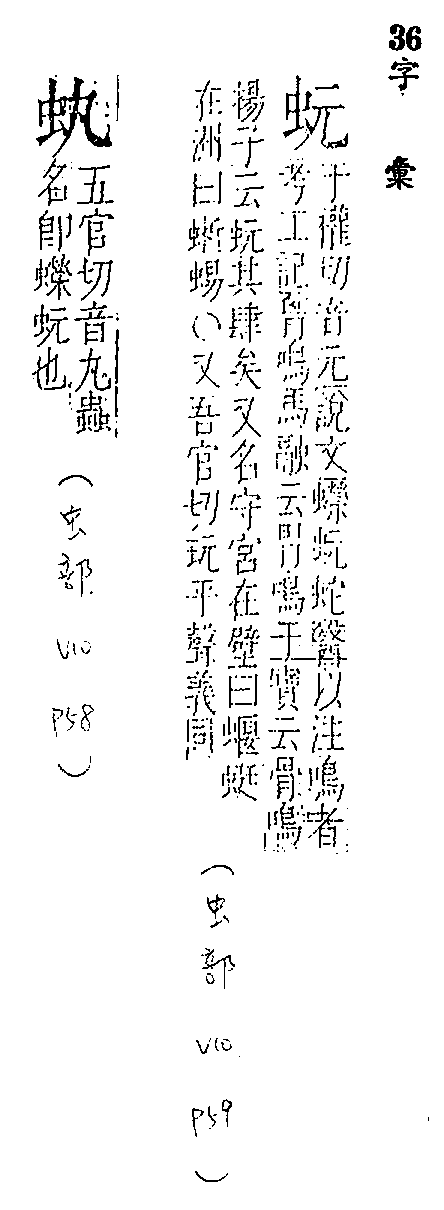 36 字彙
蚖
于權切音元說文蠑蚖蛇醫以注鳴者
考工記胷鳴馬融云胃鳴干寶云骨鳴
楊子云蚖其肆矣又名守宮在壁曰蝘蜓
在洲曰蜥蜴〇又吾官切玩平聲義同
(虫部 V10 P59)
五官切音丸蟲
名即蠑蚖也
(虫部 V10 P58)